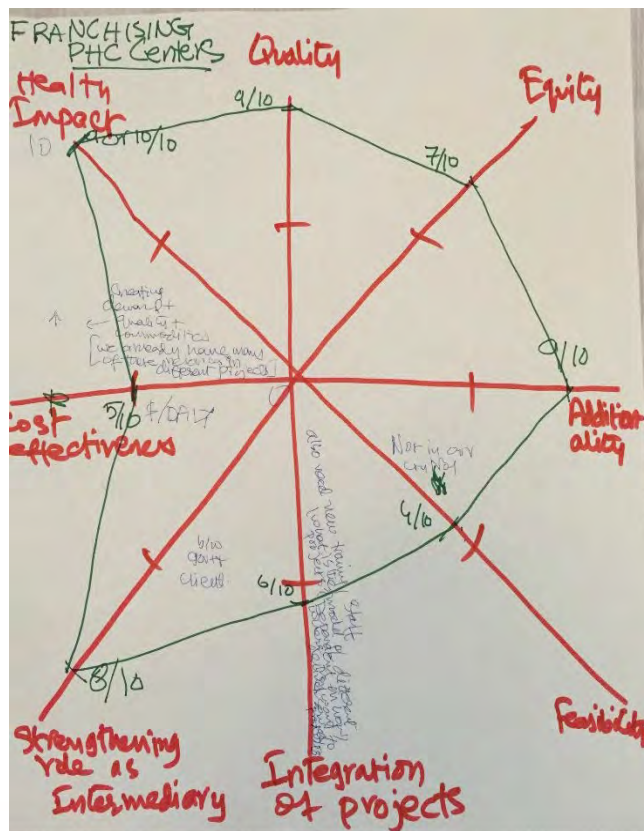 FRANCHISING
PHC Centers
Quality
Health
Impact
Equity
10
9/10
10/10
7/10
Creating
demand +
← quality +
commodities
[we already have many
of these in
different projects]
9/10
Cost
effectiveness
5/10
$/DALY
Addition-
ality
Not in our
4/10
b/w
govt
client
6/10
also need new training staff
8/10
Feasibility
Strengthening
role as
Intermediary
Integration
of projects